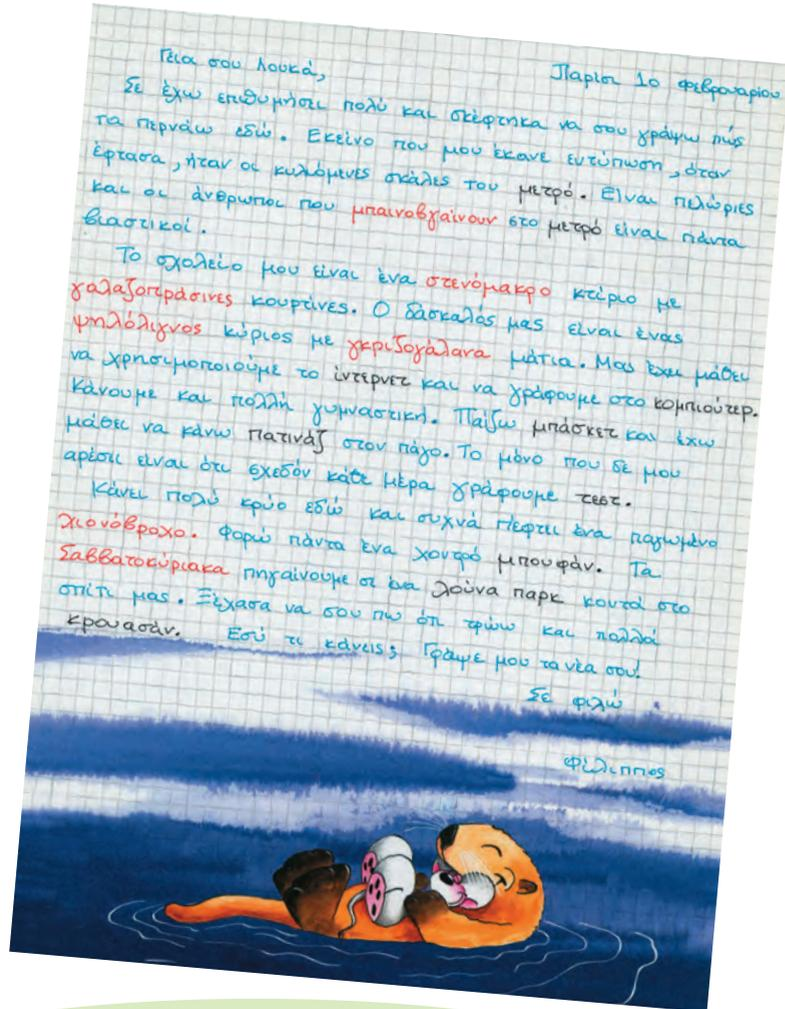 Παρίσι 10 Φεβρουαρίου
Γεια σου Λουκά,
Σε έχω επιθυμήσει πολύ και σκέφτηκα να σου γράψω πώς
τα περνάω εδώ. Εκείνο που μου έκανε εντύπωση, όταν
έφτασα, ήταν οι κυλιόμενες σκάλες του μετρό. Είναι πελώριες
και οι άνθρωποι που μπαινοβγαίνουν στο μετρό είναι πάντα
βιαστικοί.
Το σχολείο μου είναι ένα στενόμακρο κτίριο με
γαλαζοπράσινες κουρτίνες. Ο δάσκαλός μας είναι ένας
ψηλόλιγνος κύριος με γκριζογάλανα μάτια. Μας έχει μάθει
να χρησιμοποιούμε το ίντερνετ και να γράφουμε στο κομπιούτερ.
Κάνουμε και πολλή γυμναστική. Παίζω μπάσκετ και έχω
μάθει να κάνω πατινάζ στον πάγο. Το μόνο που δε μου
αρέσει είναι ότι σχεδόν κάθε μέρα γράφουμε τεστ.
Κάνει πολύ κρύο εδώ και συχνά πέφτει ένα παγωμένο
χιονόβροχο. Φορώ πάντα ένα χοντρό μπουφάν. Τα
Σαββατοκύριακα πηγαίνουμε σε ένα λούνα παρκ κοντά στο
σπίτι μας. Ξέχασα να σου πω ότι τρώω και πολλά
κρουασάν. Εσύ τι κάνεις; Γράψε μου τα νέα σου!
Σε φιλώ
Φίλιππος